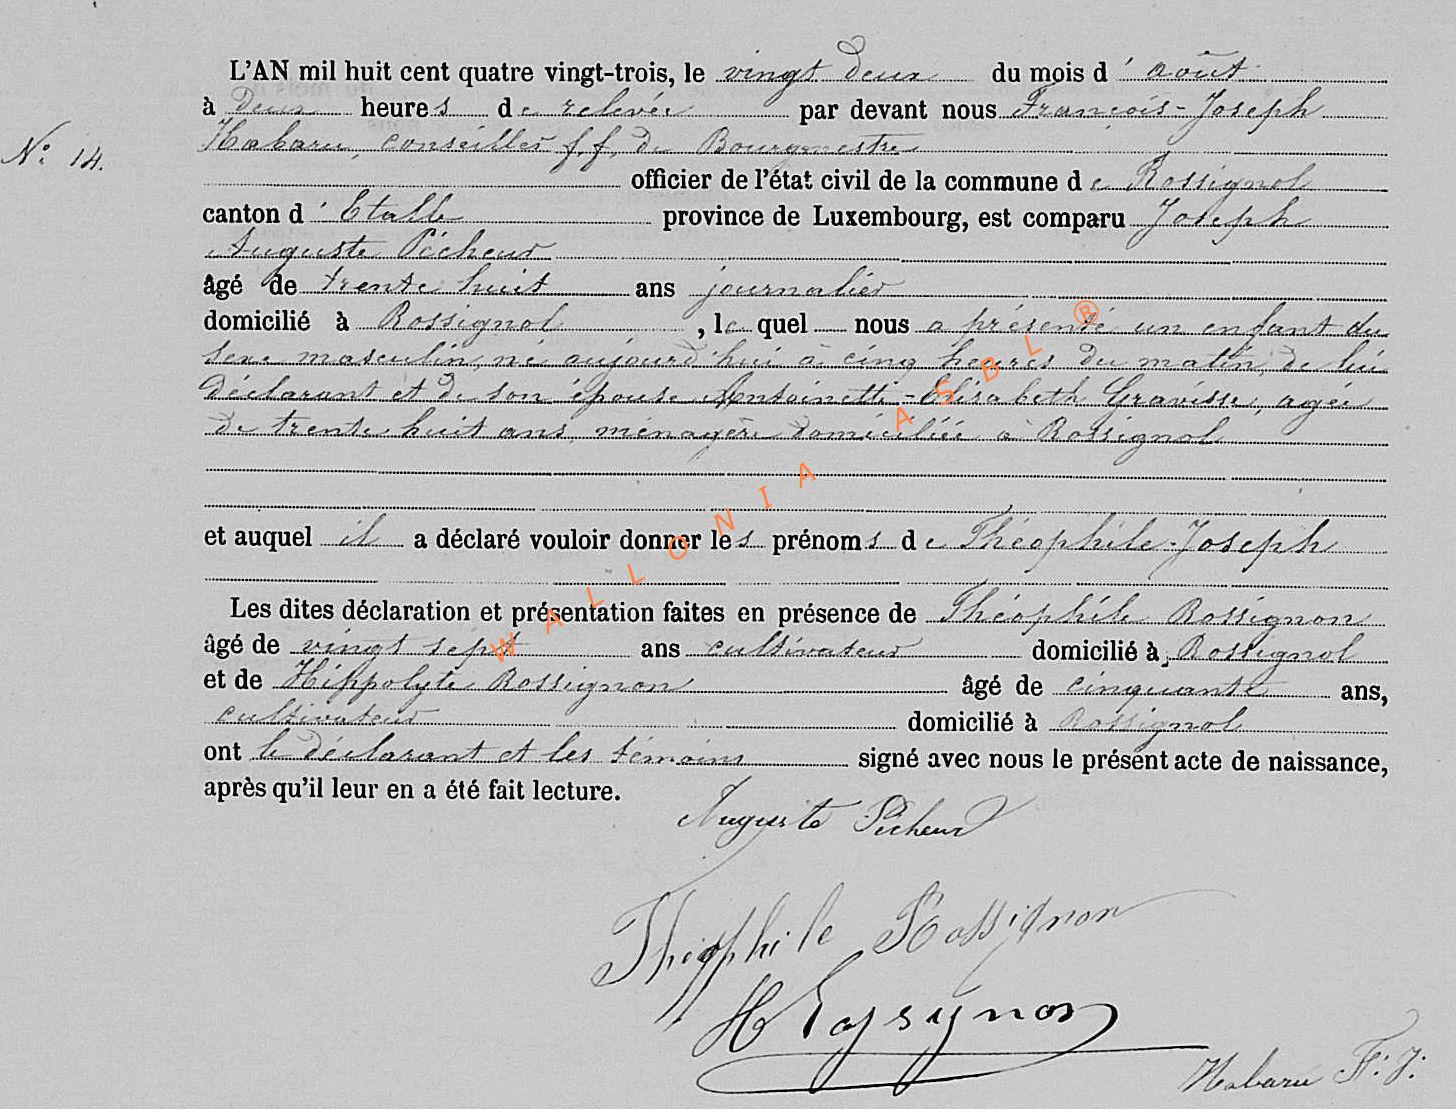 L'AN mil huit cent quatre vingt-trois, le vingt deux du mois d'août
à Deux heures de relevée par devant nous François-Joseph
Habaru, conseiller f.f. de Bourgmestre
N° 14.
officier de l'état civil de la commune de Rossignol
canton d'Etalle province de Luxembourg, est comparu Joseph
Auguste Pécheur
âgé de trente huit ans journalier
domicilié à Rossignol, le quel nous a présenté un enfant du
sexe masculin, né aujourd'hui à cinq heures du matin, de lui
déclarant et de son épouse Antoinette-Elisabeth Gravisse, agée
de trente huit ans, ménagère domiciliée à Rossignol
et auquel il a déclaré vouloir donner les prénoms de Théophile-Joseph
Les dites déclaration et présentation faites en présence de Théophile Rossignon
âgé de vingt sept ans cultivateur domicilié à Rossignol
et de Hippolyte Rossignon âgé de cinquante ans,
cultivateur domicilié à Rossignol
ont le déclarant et les témoins signé avec nous le présent acte de naissance,
après qu'il leur en a été fait lecture.
Auguste Pécheur
Théophile Rossignon
H Rossignon
Habaru F. J.
WALLONIA ASBL ®